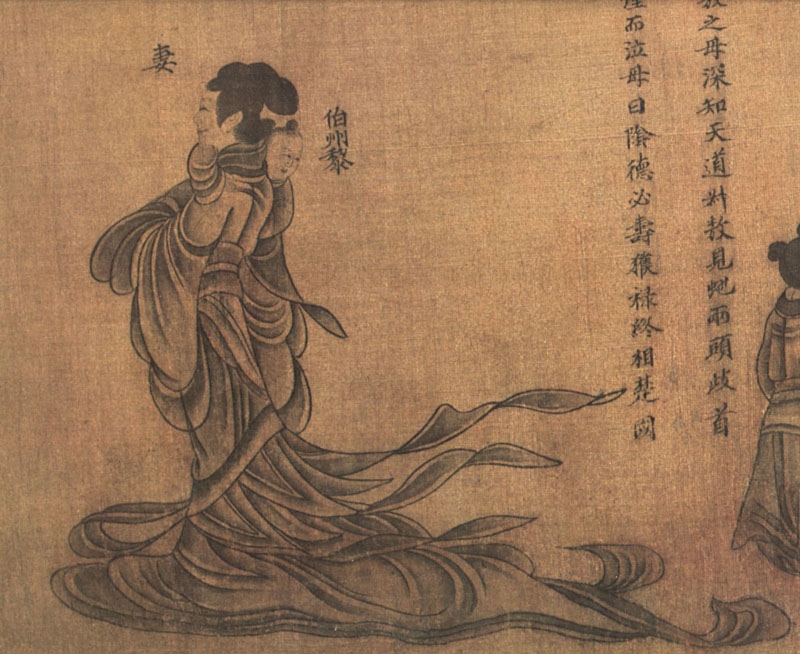 敖之母深知天道叔敖見虵兩頭歧首
而泣母曰陰德必壽獲祿終相楚國
伯州黎
妻